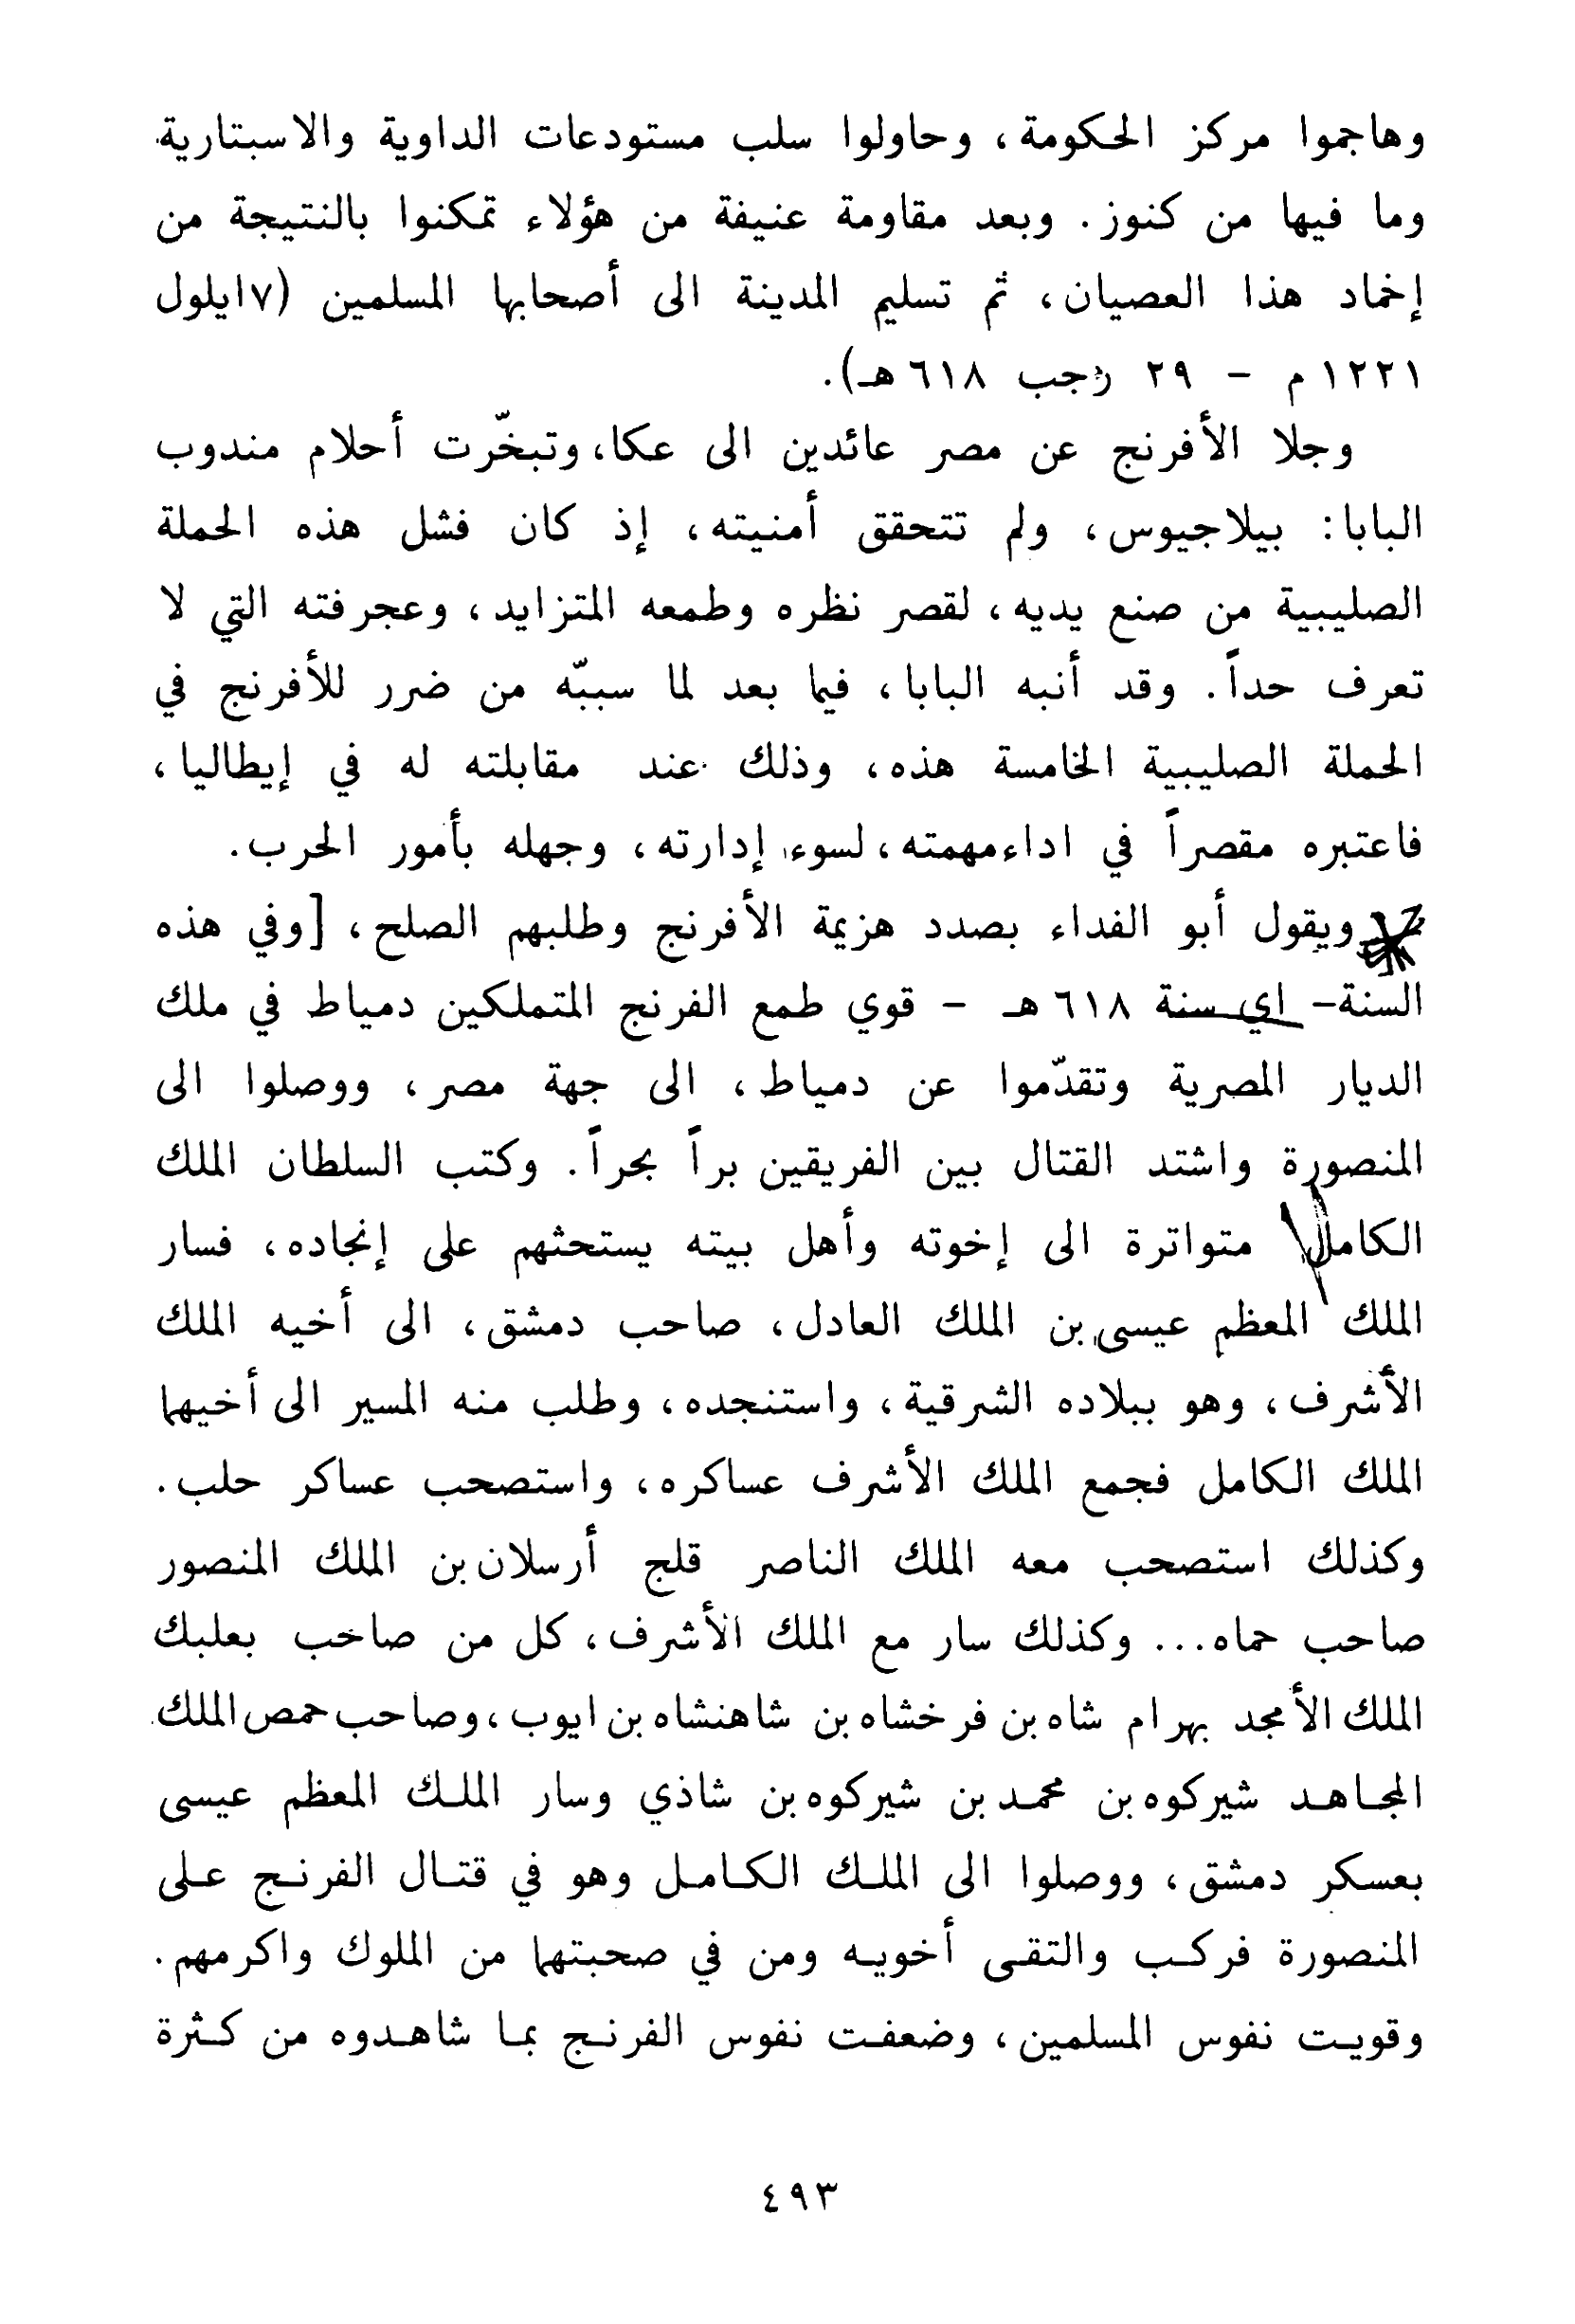 وهاجموا مركز الحكومة، وحاولوا سلب مستودعات الداوية والاسبتارية
وما فيها من كنوز. وبعد مقاومة عنيفة من هؤلاء تمكنوا بالنتيجة من
إخماد هذا العصيان، ثم تسليم المدينة الى أصحابها المسلمين (٧ايلول
١٢٢١ م - ٢٩ رجب ٦١٨ هـ).
وجلا الأفرنج عن مصر عائدين الى عكا، وتبخّرت أحلام مندوب
البابا: بيلاجيوس، ولم تتحقق أمنيته، إذ كان فشل هذه الحملة
الصليبية من صنع يديه، لقصر نظره وطمعه المتزايد، وعجرفته التي لا
تعرف حداً. وقد أنبه البابا، فيما بعد لما سببّه من ضرر للأفرنج في
الحملة الصليبية الخامسة هذه، وذلك عند مقابلته له في إيطاليا،
فاعتبره مقصراً في اداءمهمته، لسوء إدارته، وجهله بأمور الحرب.
ويقول أبو الفداء بصدد هزيمة الأفرنج وطلبهم الصلح، [وفي هذه
السنة- اي سنة ٦١٨ هـ - قوي طمع الفرنج المتملكين دمياط في ملك
الديار المصرية وتقدّموا عن دمياط، الى جهة مصر، ووصلوا الى
المنصورة واشتد القتال بين الفريقين براً بحراً. وكتب السلطان الملك
الكامل متواترة الى إخوته وأهل بيته يستحثهم على إنجاده، فسار
الملك المعظم عيسى بن الملك العادل، صاحب دمشق، الى أخيه الملك
الأشرف، وهو ببلاده الشرقية، واستنجده، وطلب منه المسير الى أخيهما
الملك الكامل فجمع الملك الأشرف عساكره، واستصحب عساكر حلب.
وكذلك استصحب معه الملك الناصر قلج أرسلان بن الملك المنصور
صاحب حماه... وكذلك سار مع الملك الأشرف، كل من صاحب بعلبك
الملك الأمجد بهرام شاه بن فرخشاه بن شاهنشاه بن ايوب، وصاحب حمص الملك
المجاهد شيركوه بن محمد بن شيركوه بن شاذي وسار الملك المعظم عيسى
بعسكر دمشق، ووصلوا الى الملك الكامل وهو في قتال الفرنج على
المنصورة فركب والتقى أخويه ومن في صحبتهما من الملوك واكرمهم.
وقويت نفوس المسلمين، وضعفت نفوس الفرنج بما شاهدوه من كثرة
٤٩٣